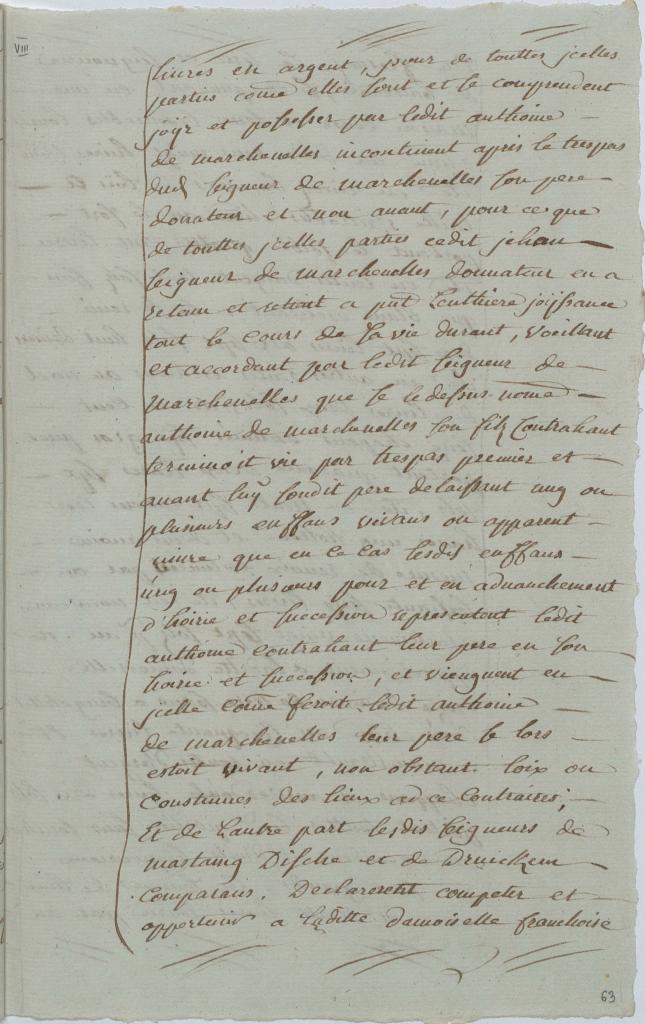 VIII
livres en argent, pour de touttes jcelles
parties come elles sont et se comprendent
joÿr et possesser par ledit anthoine –
de marchenelles incontinent apres le trespas
dud seigneur de marchenelles son pere –
donnateur et non avant, pour ce que
de touttes jcelles parties cedit jehan –
seigneur de marchenelles donnateur en a
retenu et retient a put L'entthiere joÿssance
tout le cours de sa vie durant, voeillant
et accordant par ledit seigneur de –
Marchenelles que se le dessus nomé –
anthoine de marchenelles son filz Contrahant
terminoit vie par trespas premier et –
avant luÿ sondit pere delaissant ung ou
plusieurs enffans vivans ou apparent –
vivre que en ce cas lesdis enffans –
ung ou plusieurs pour et en advanchement
d'hoirie et succession representent ledit
anthoine contrahant leur pere en son
hoirie et succession, et viengnent en –
jcelle come feroit ledit anthoine –
de marchenelles leur pere se lors –
estoit vivant, non obstant loix ou
Coustumes des lieux ad ce Contraires; –
Et de L'autre part lesdis seigneurs de
mastaing Dische et de Druickem –
Comparans. Declarerent competer et –
appertenir a laditte damoiselle franchoise
63